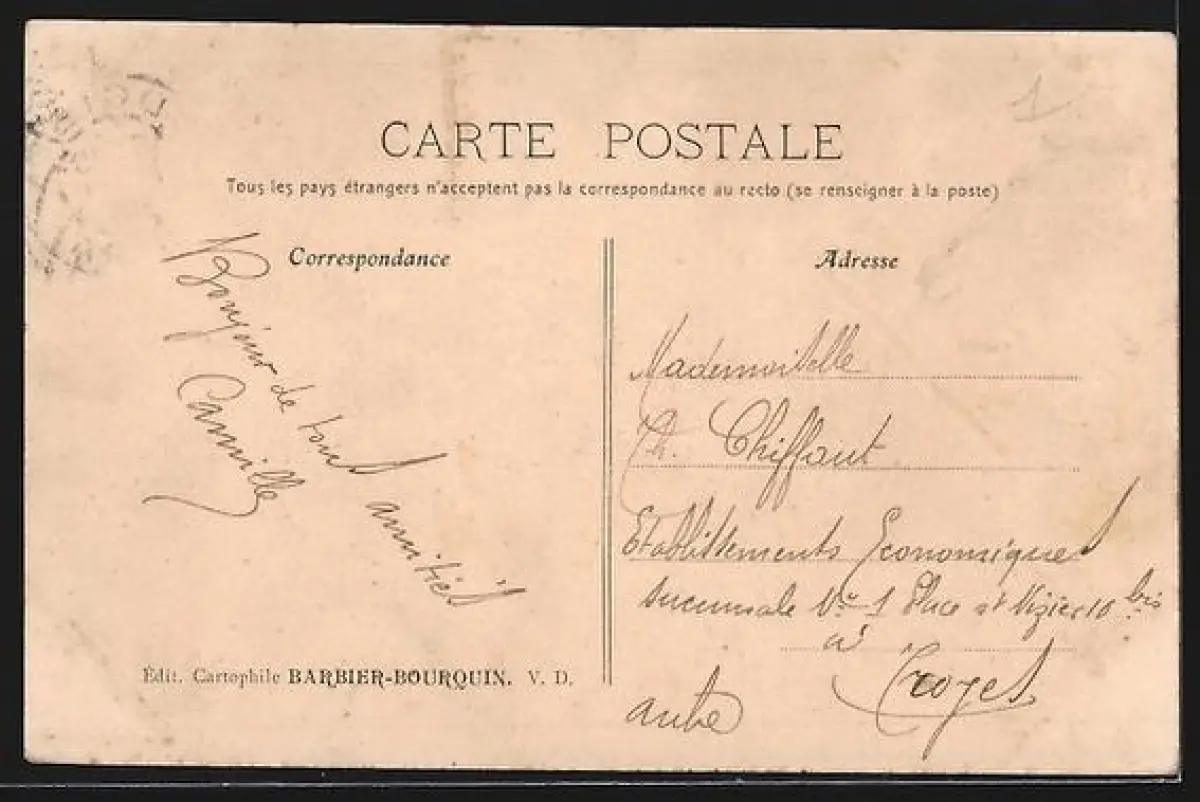 CARTE POSTALE
Tous les pays étrangers n'acceptent pas la correspondance au recto (se renseigner à la poste)
Correspondance
Bonjour de tout amitiés
Camille
Édit. Cartophile BARBIER-BOURQUIN. V. D.
Adresse
Mademoiselle
Ch. Chiffaut
Etablissements Economiques
succursale N° 1 st Nizier 10 bis
à Troyes
aube
1